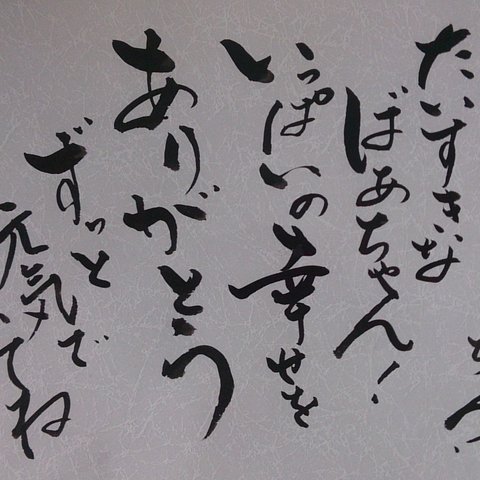 たいすきな
ばあちゃん!
いっぱいの
幸せを
ありがとう
ずっと
元気で
いてね